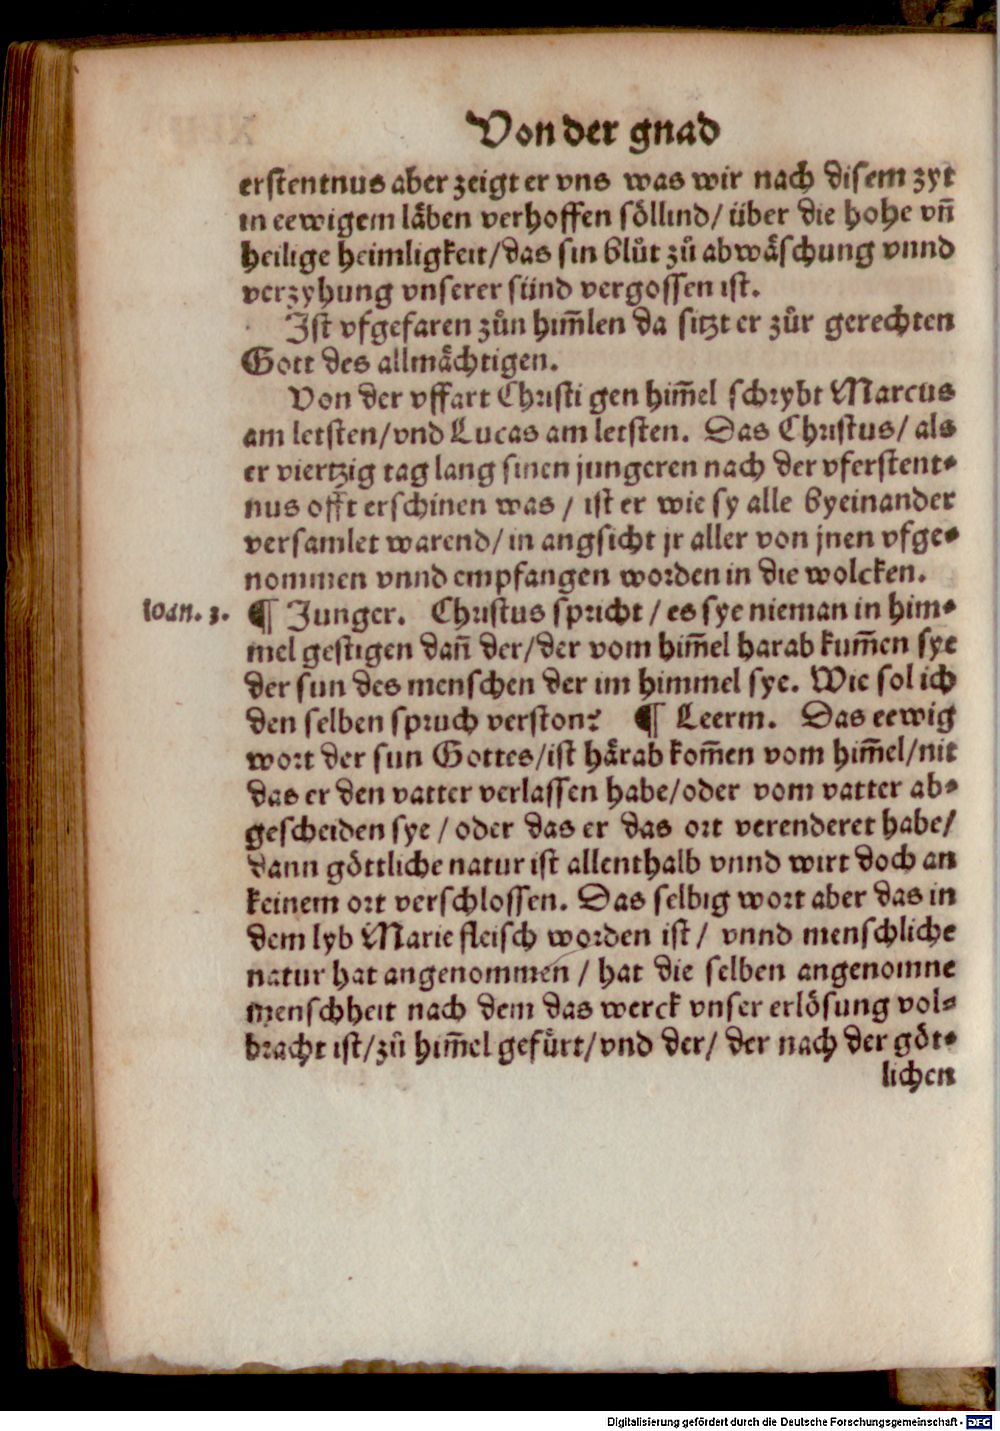 Von der gnad
erstentnus aber zeigt er vns was wir nach disem zyt
in eewigem läben verhoffen söllind/ über die hohe vñ
heilige heimligkeit/das sin blůt zů abwäschung vnnd
verzyhung vnserer sünd vergossen ist.
Ist vfgefaren zůn him̃len da sitzt er zůr gerechten
Gott des allmächtigen.
Von der vffart Christi gen him̃el schrybt Marcus
am letsten/vnd Lucas am letsten. Das Christus/ als
er viertzig tag lang sinen jungeren nach der vferstent⸗
nus offt erschinen was / ist er wie sy alle byeinander
versamlet warend/in angsicht jr aller von jnen vfge⸗
nommen vnnd empfangen worden in die wolcken.
Ioan. 3. ¶ Junger. Christus spricht / es sye nieman in him⸗
mel gestigen dañ der/der vom him̃el harab kum̃en sye
der sun des menschen der im himmel sye. Wie sol ich
den selben spruch verston? ¶ Leerm. Das eewig
wort der sun Gottes/ist härab kom̃en vom him̃el/nit
das er den vatter verlassen habe/oder vom vatter ab⸗
gescheiden sye / oder das er das ort verenderet habe/
dann göttliche natur ist allenthalb vnnd wirt doch an
keinem ort verschlossen. Das selbig wort aber das in
dem lyb Marie fleisch worden ist / vnnd menschliche
natur hat angenommen / hat die selben angenomne
menschheit nach dem das werck vnser erlösung vol⸗
bracht ist/zů him̃el gefůrt/vnd der/ der nach der göt⸗
lichen
Digitalisierung gefördert durch die Deutsche Forschungsgemeinschaft - DFG